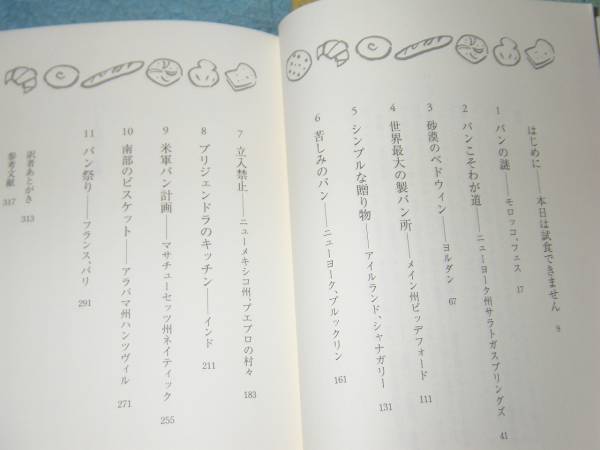 はじめに——本日は試食できません 9
1 パンの謎——モロッコ、フェス 17
2 パンこそわが道——ニューヨーク州サラトガスプリングズ 41
3 砂漠のベドウィン——ヨルダン 67
4 世界最大の製パン所——メイン州ビッデフォード 111
5 シンプルな贈り物——アイルランド、シャナガリー 131
6 苦しみのパン——ニューヨーク、ブルックリン 161
7 立入禁止——ニューメキシコ州、プエブロの村々 183
8 ブリジェンドラのキッチン——インド 211
9 米軍パン計画——マサチューセッツ州ネイティック 255
10 南部のビスケット——アラバマ州ハンツヴィル 271
11 パン祭り——フランス、パリ 291
訳者あとがき 313
参考文献 317